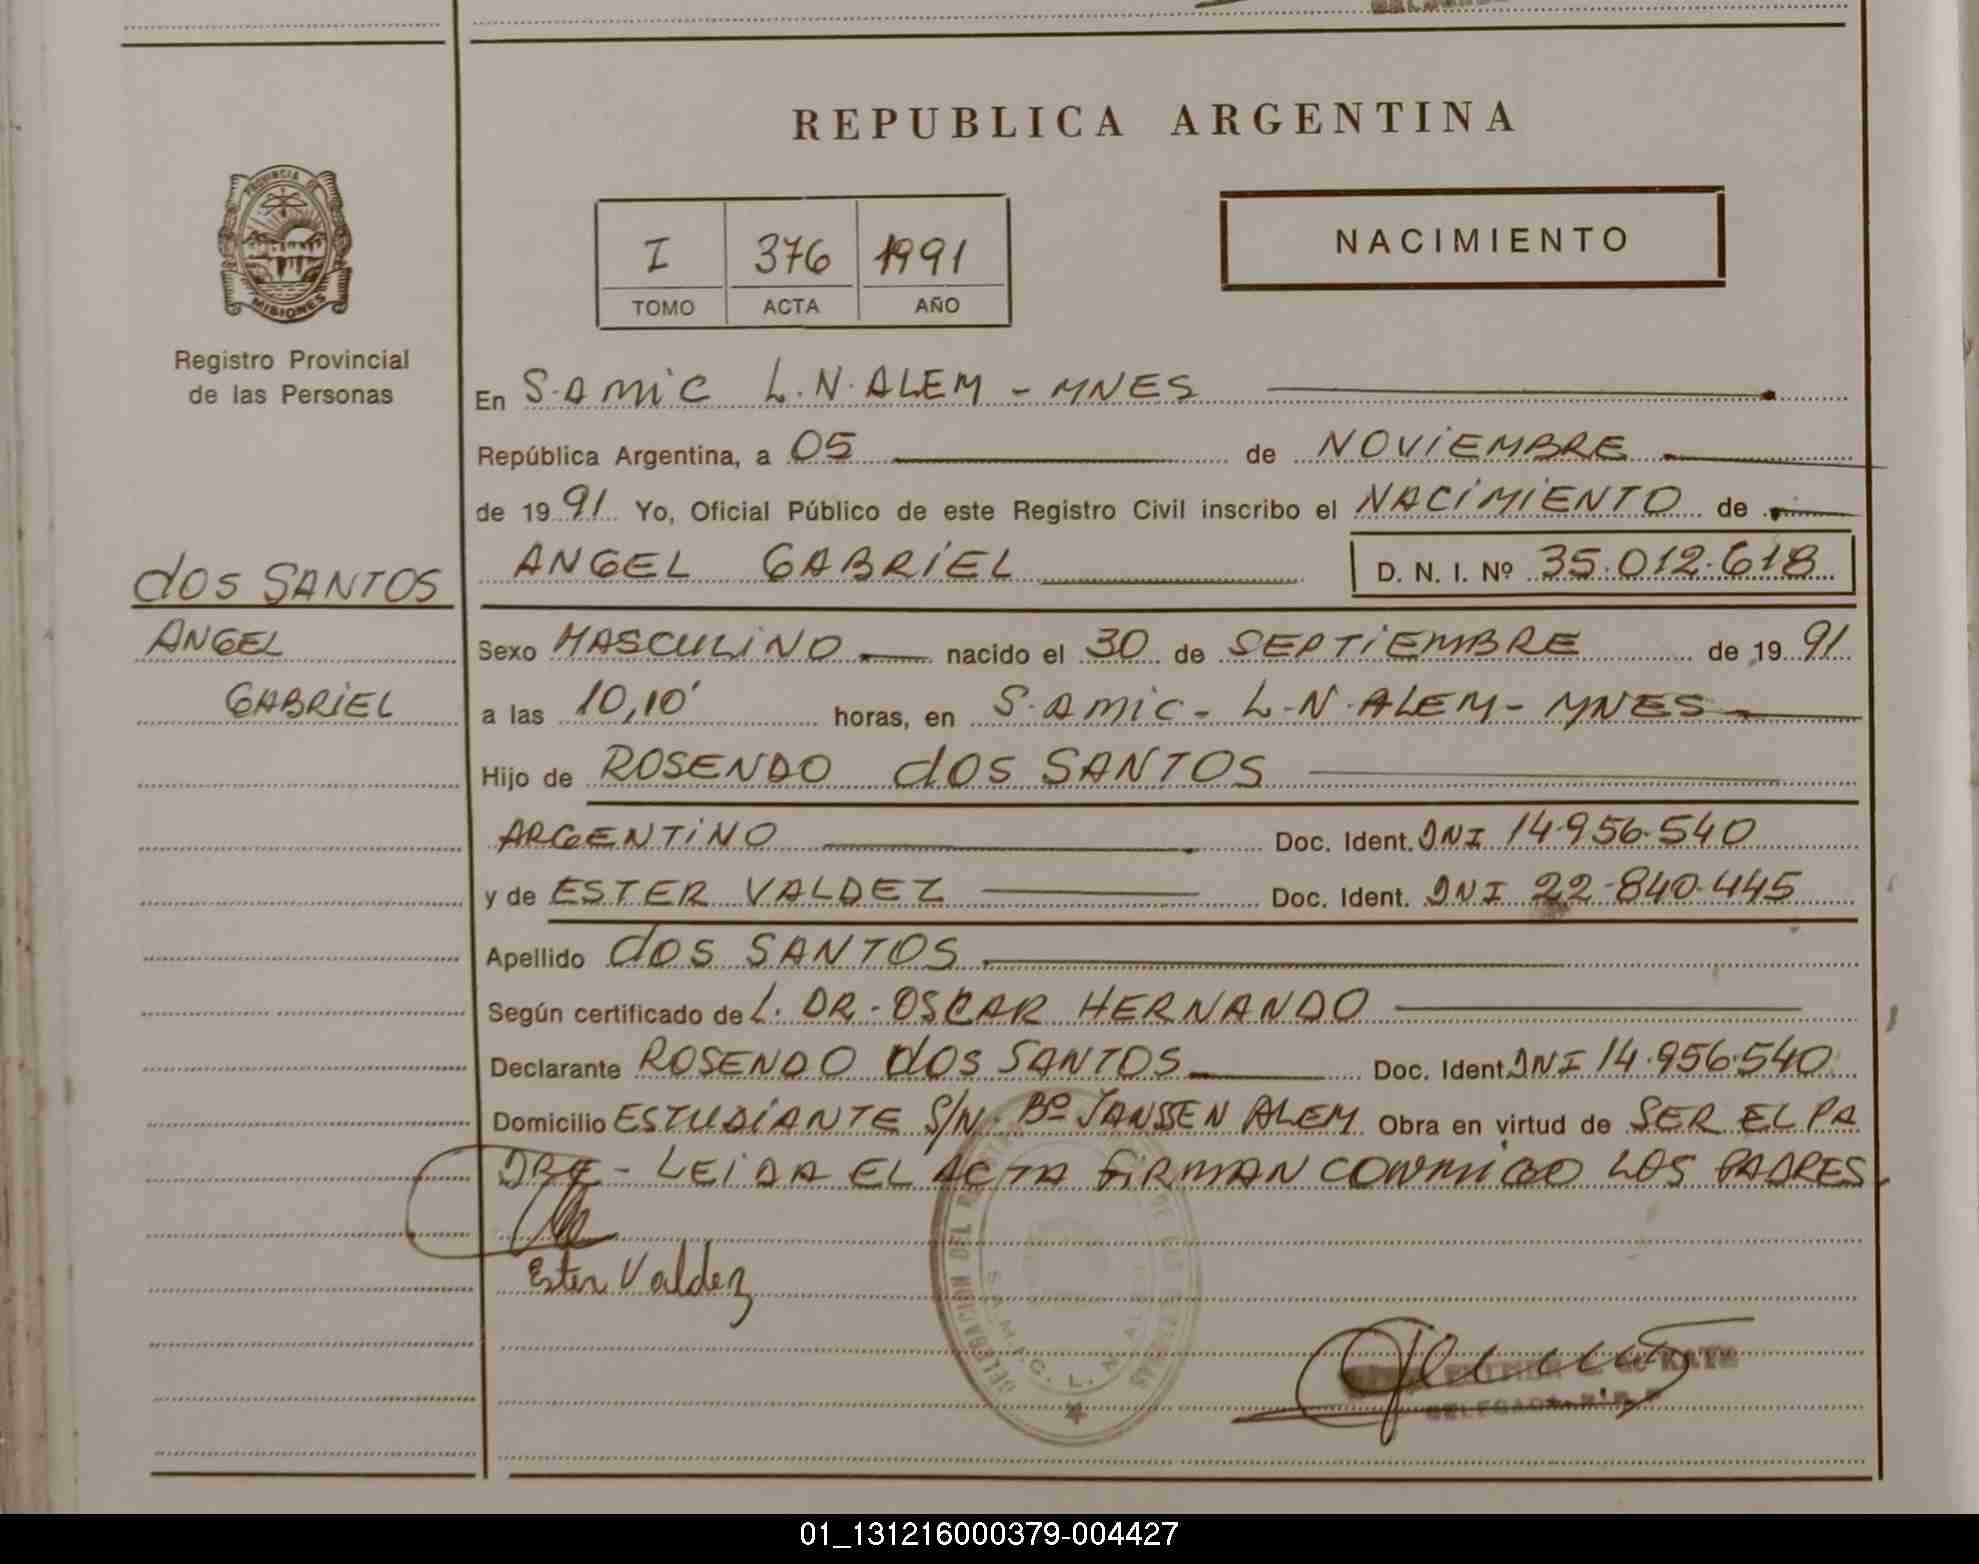 REPUBLICA ARGENTINA
PROVINCIA DE
MISIONES
Registro Provincial
de las Personas
I 376 1991
TOMO ACTA AÑO
NACIMIENTO
En S.AMIC L.N.ALEM - MNES
República Argentina, a 05 de NOVIEMBRE
de 1991 Yo, Oficial Público de este Registro Civil inscribo el NACIMIENTO de
dos SANTOS
ANGEL
GABRIEL
ANGEL GABRIEL D. N. I. Nº 35.012.618
Sexo MASCULINO nacido el 30 de SEPTIEMBRE de 1991
a las 10,10' horas, en S.AMIC - L.N.ALEM - MNES
Hijo de ROSENDO dos SANTOS
ARGENTINO Doc. Ident. DNI 14.956.540
y de ESTER VALDEZ Doc. Ident. DNI 22.840.445
Apellido dos SANTOS
Según certificado de L. DR. OSCAR HERNANDO
Declarante ROSENDO dos SANTOS Doc. Ident. DNI 14.956.540
Domicilio ESTUDIANTE S/N. Bº JANSSEN ALEM Obra en virtud de SER EL PA
DRE - LEIDA EL ACTA FIRMAN CONMIGO LOS PADRES.
Ester Valdez
DELEGACION DEL
DELEGADA
01_131216000379-004427